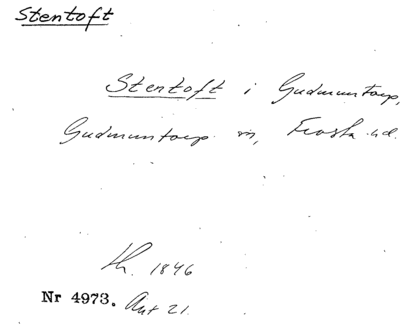 Stentoft
Stentoft i Gudmuntorp,
Gudmuntorp sn, Frosta hd.
th. 1846
Nr 4973. Ant 21.